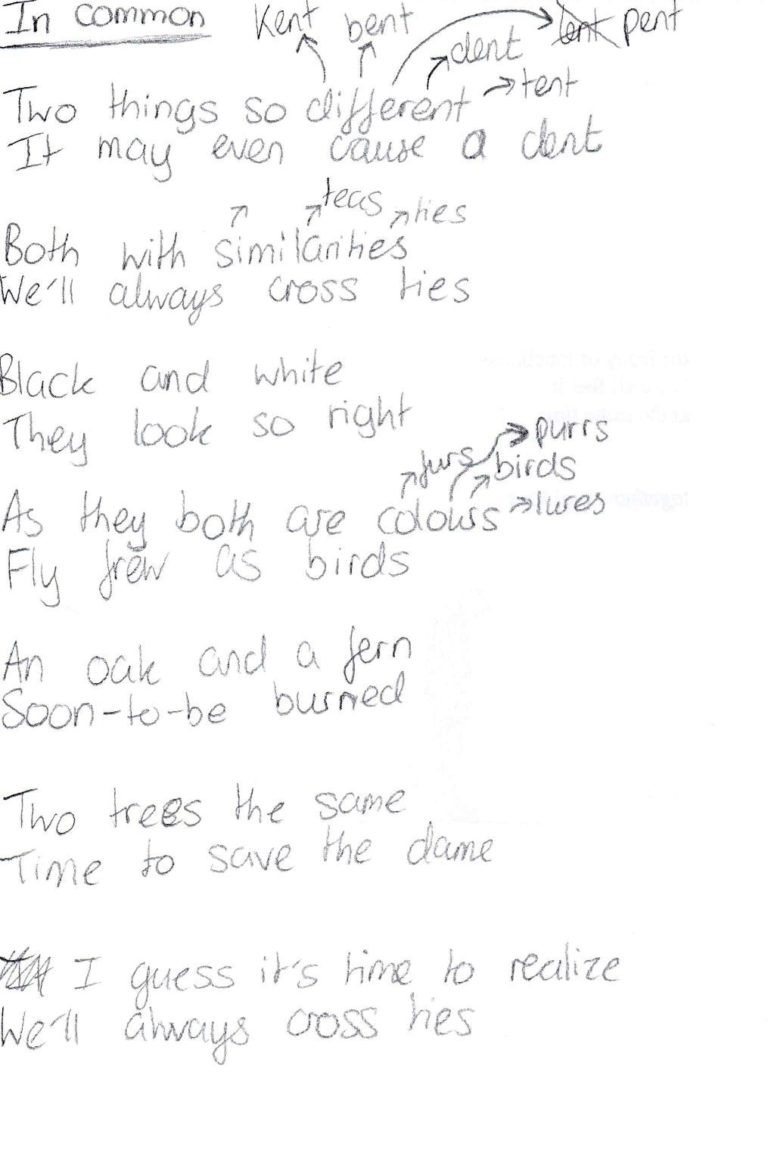 In common Kent bent pent
dent
tent
Two things so different
It may even cause a dent
teas ties
Both with similarities
We'll always cross ties
Black and white
They look so right
purrs
furs birds
As they both are colours lures
Fly frew as birds
An oak and a fern
Soon-to-be burned
Two trees the same
Time to save the dame
I guess it's time to realize
We'll always cross ties